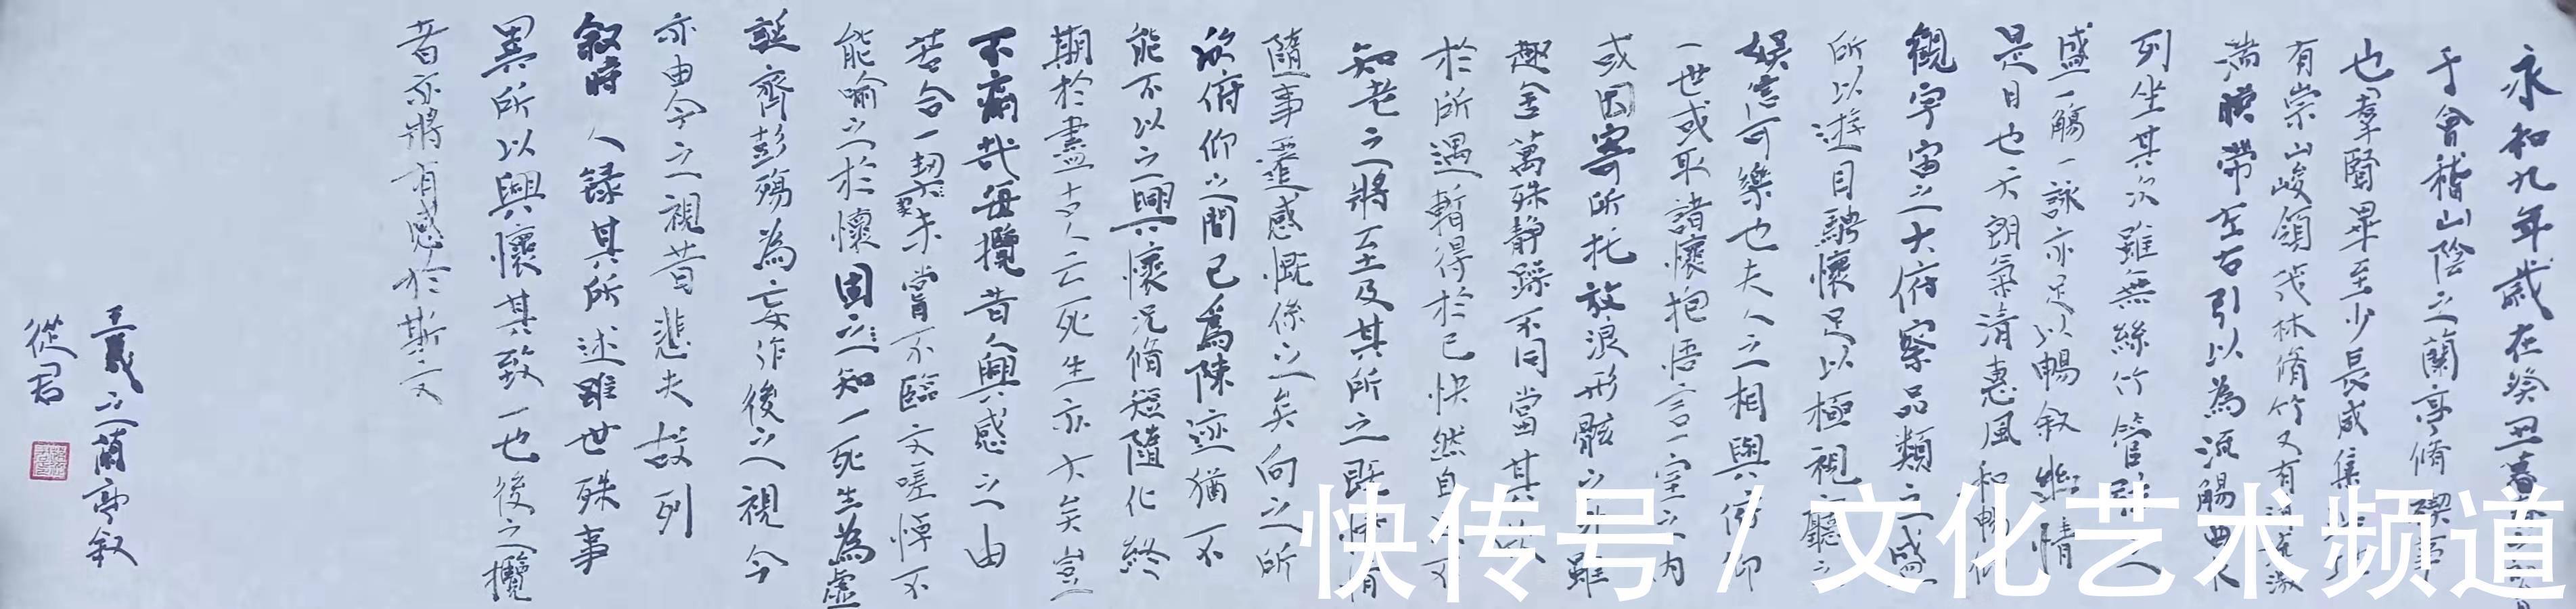 永和九年歲在癸丑暮春之初會
于會稽山陰之蘭亭脩禊事
也羣賢畢至少長咸集此地
有崇山峻領茂林脩竹又有清流激
湍暎帶左右引以為流觴曲水
列坐其次雖無絲竹管弦之
盛一觴一詠亦足以暢敘幽情
是日也天朗氣清惠風和暢仰
觀宇宙之大俯察品類之盛
所以遊目騁懷足以極視聽之
娛信可樂也夫人之相與俯仰
一世或取諸懷抱悟言一室之內
或因寄所托放浪形骸之外雖
趣舍萬殊靜躁不同當其欣
於所遇暫得於己快然自足不
知老之將至及其所之既惓情
隨事遷感慨係之矣向之所
欣俯仰之間已為陳迹猶不
能不以之興懷況脩短隨化終
期於盡古人云死生亦大矣豈
不痛哉每攬昔人興感之由
若合一契未嘗不臨文嗟悼不
能喻之於懷固知一死生為虛
誕齊彭殤為妄作後之視今
亦由今之視昔悲夫故列
敘時人錄其所述雖世殊事
異所以興懷其致一也後之攬
者亦將有感於斯文
羲之蘭亭敘
從君
快传号/文化艺术频道